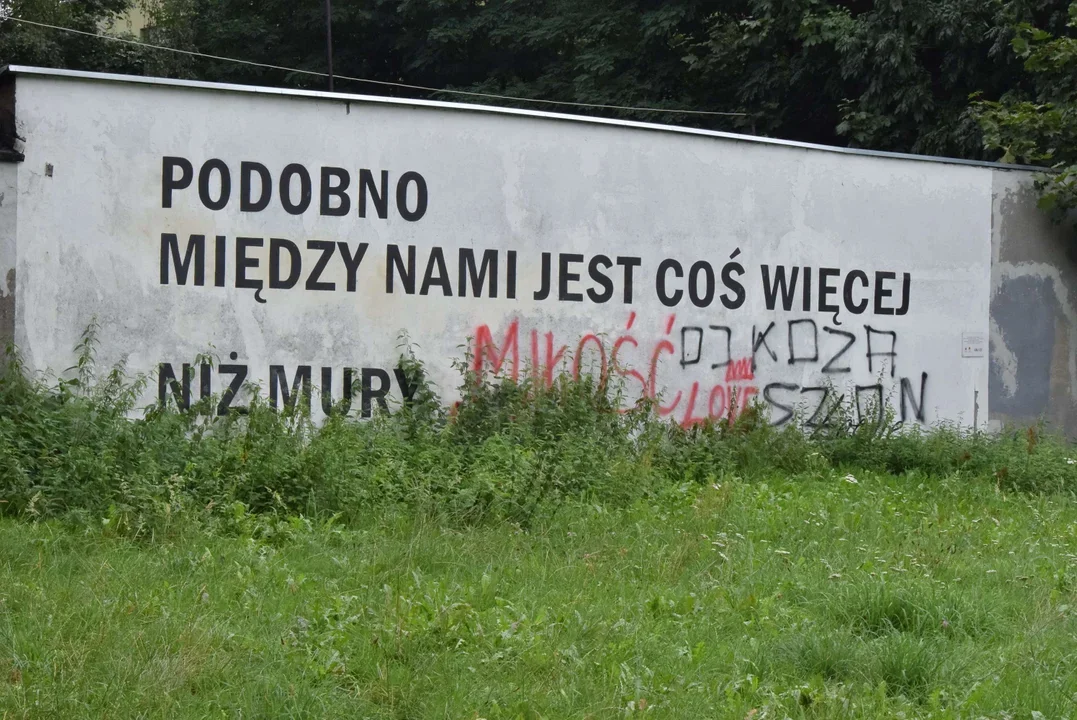 PODOBNO
MIĘDZY NAMI JEST COŚ WIĘCEJ
NIŻ MURY
MIŁOŚĆ
LOVE
KOZA
SZON